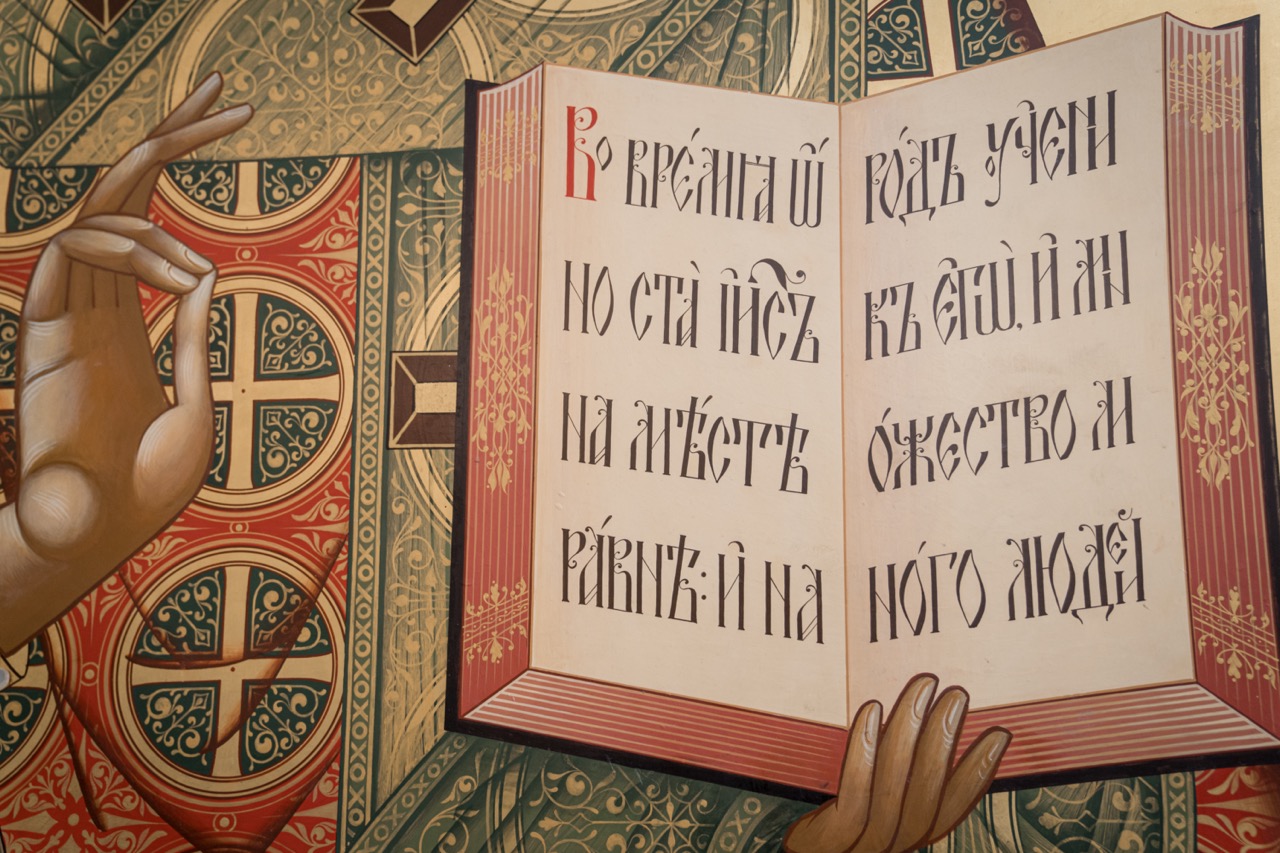 Во вре́мꙗ ѡ҆́
но ста̀ і҆и҃съ
на мѣ́стѣ
ра́внѣ: и҆ на
ро́дъ ᲂу҆чени
къ є҆гѡ̀, и҆ мн
о́жество м
но́го люде́й